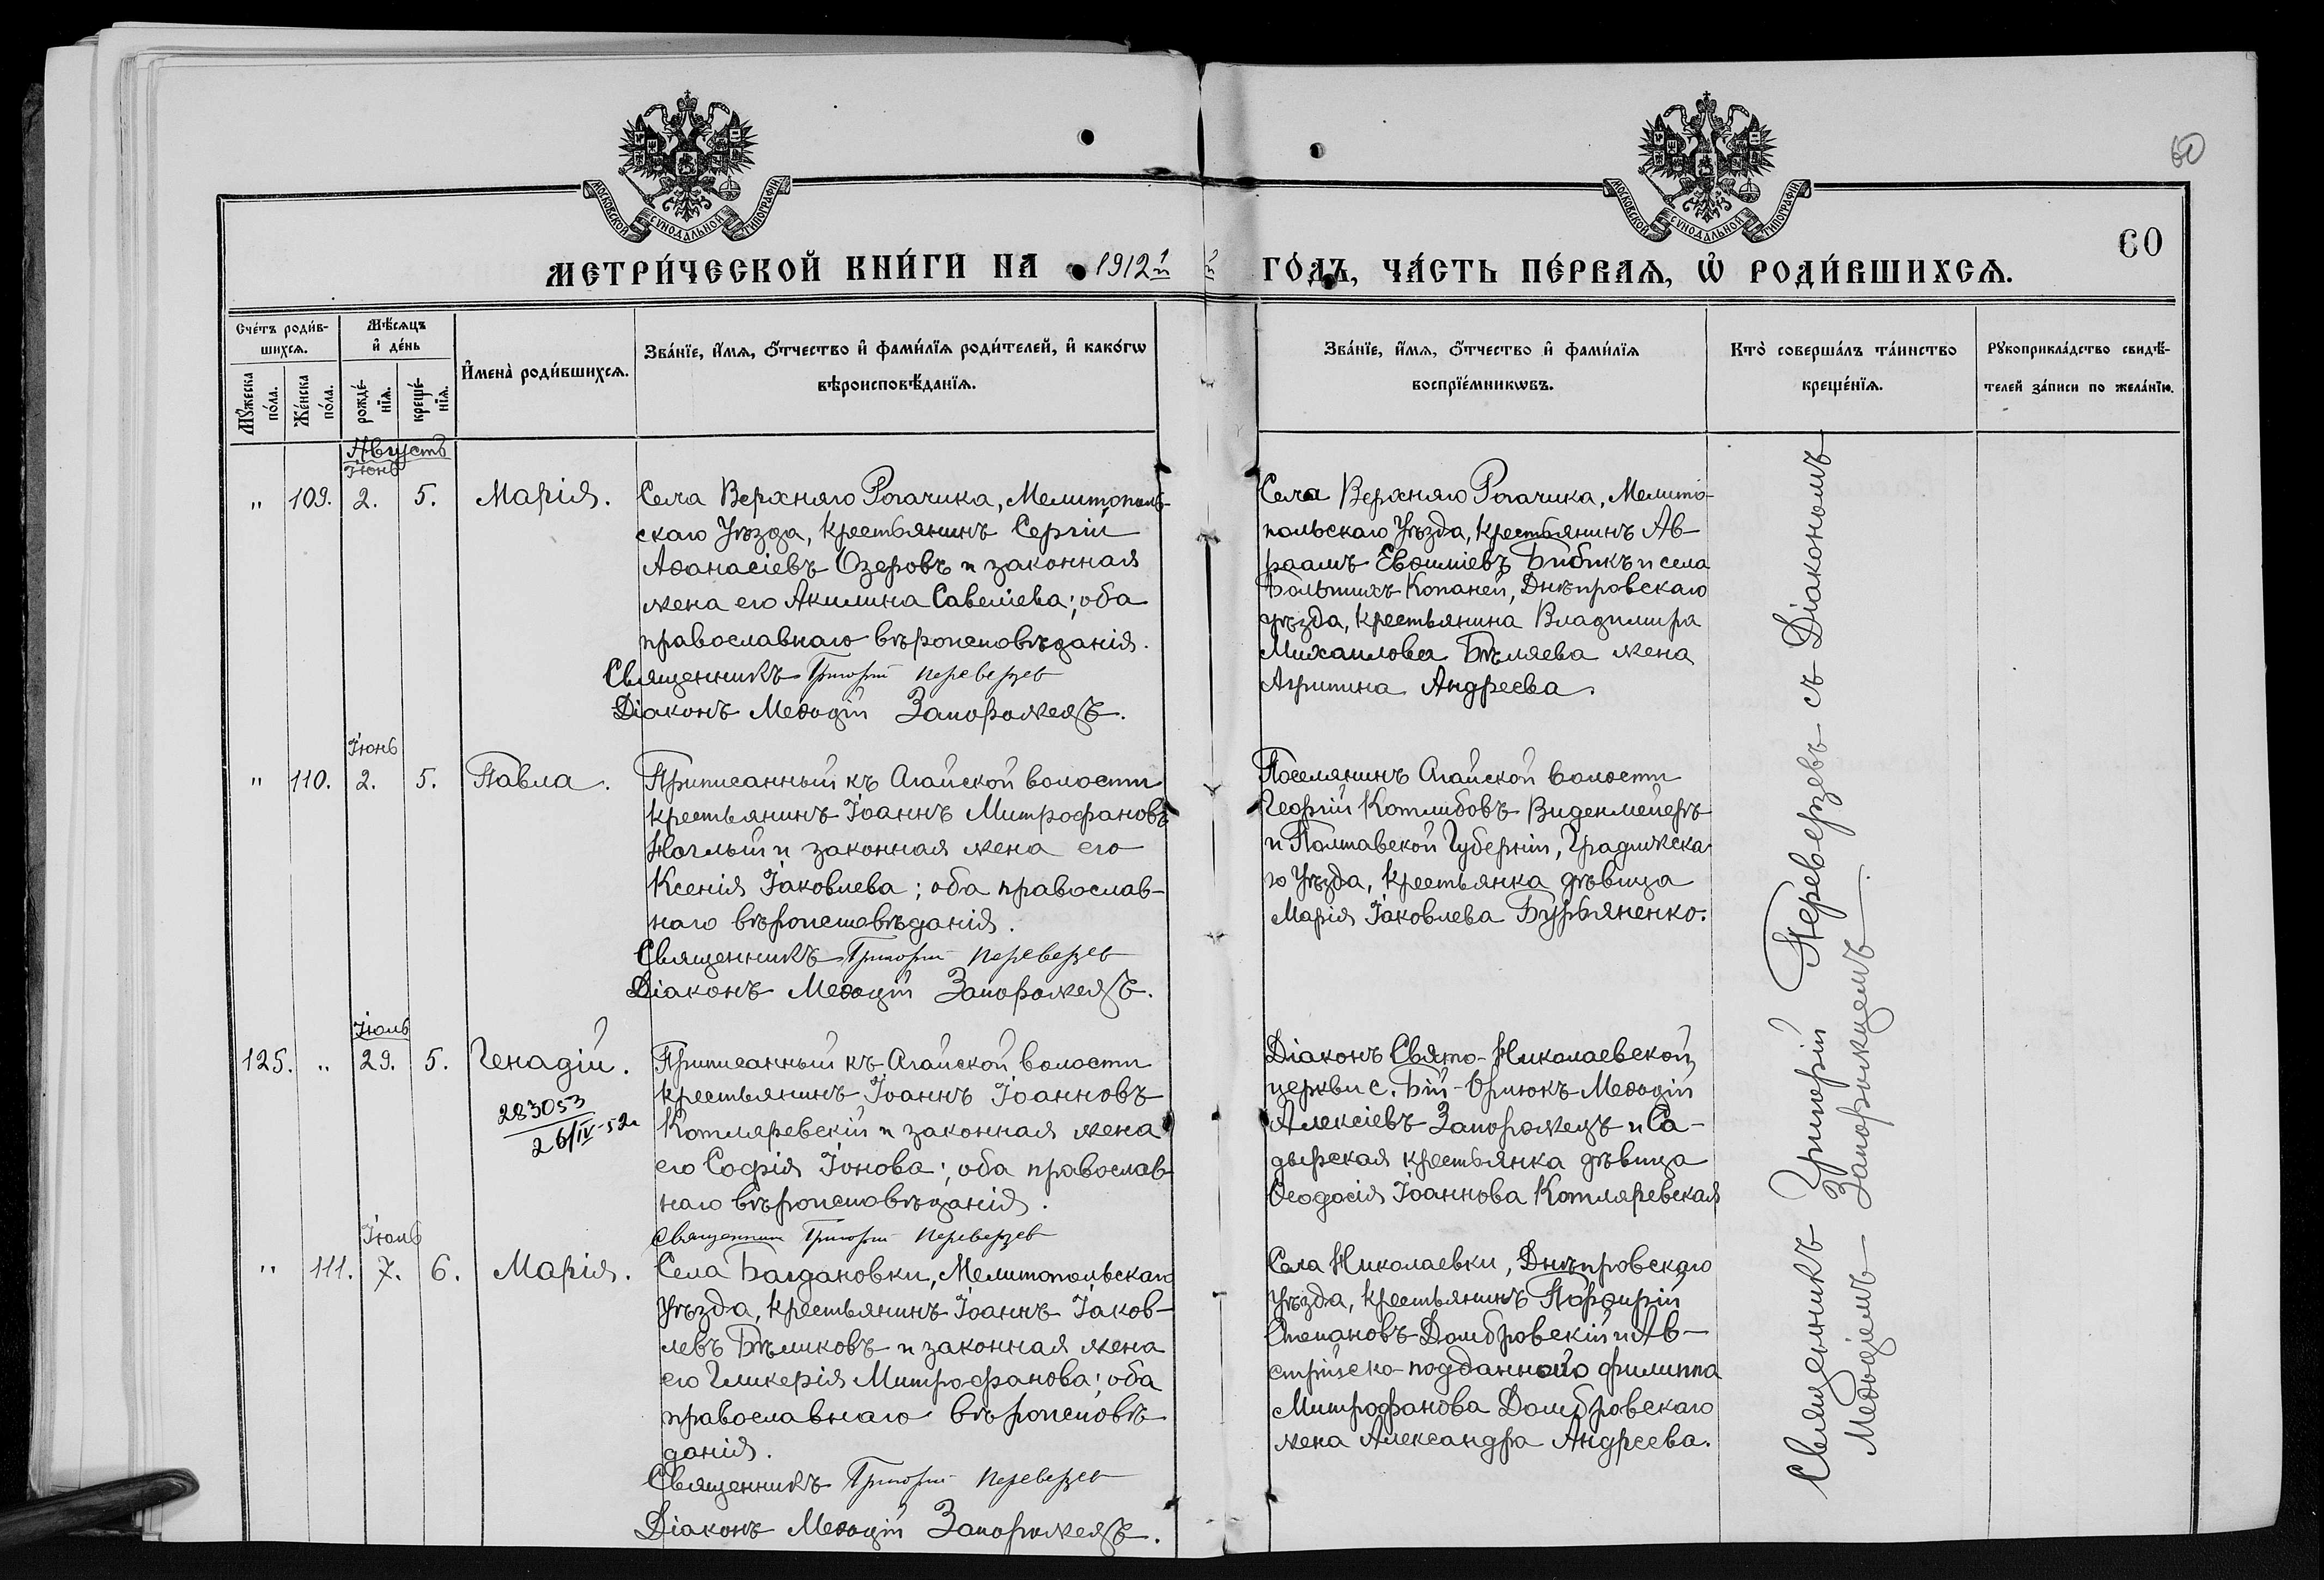 60
МОСКОВСКОЙ СѴНОДАЛЬНОЙ ТИПОГРАФІИ
МОСКОВСКОЙ СѴНОДАЛЬНОЙ ТИПОГРАФІИ
60
МЕТРИ́ЧЕСКОЙ КНИ́ГИ НА 1912й
й ГО́ДЪ, ЧА́СТЬ ПЕ́РВАѦ, Ѡ҆ РОДИ́ВШИХСѦ.
Сче́тъ роди́в-
шихсѧ.
Мѣ́сѧцъ
и҆ де́нь
Мꙋ́жеска по́ла.
Же́нска по́ла.
рожде́-
нїѧ.
креще́-
нїѧ.
И҆мена̀ роди́вшихсѧ.
Зва́нїе, и҆́мѧ, ѻ҆́тчество и҆ фами́лїѧ роди́телей, и҆ како́гѡ
вѣроисповѣ́данїѧ.
Зва́нїе, и҆́мѧ, ѻ҆́тчество и҆ фами́лїѧ
воспрїе́мникѡвъ.
Кто̀ соверша́лъ та́инство
креще́нїѧ.
Рꙋкоприкла́дство свидѣ́-
телей за́писи по жела́нїю.
Августъ
Іюнь
" 109. 2. 5. Марія.
Села Верхняго Рогачика, Мелитополь-
скаго Уѣзда, крестьянинъ Сергій
Аѳанасіевъ Озеровъ и законная
жена его Акилина Савеліева; оба
православнаго вѣроисповѣданія.
Священникъ Григорій Переверзев
Діаконъ Меѳодій Запорожецъ.
Села Верхняго Рогачика, Мелито-
польскаго Уѣзда, крестьянинъ Ав-
раамъ Евѳиміевъ Бибикъ и села
Большихъ Копаней, Днѣпровскаго
уѣзда, крестьянина Владимира
Михаилова Бѣляева жена
Агрипина Андреева.
Іюнь
" 110. 2. 5. Павла.
Приписанный къ Агайской волости
крестьянинъ Іоаннъ Митрофановъ
Наглый и законная жена его
Ксенія Іаковлева; оба православ-
наго вѣроисповѣданія.
Священникъ Григорій Переверзев
Діаконъ Меѳодій Запорожецъ.
Поселянинъ Агайской волости
Георгій Котлибовъ Виденмейеръ
и Полтавской Губерніи, Градижска-
го Уѣзда, крестьянка дѣвица
Марія Іаковлева Бурьяненко.
Іюль
125. " 29. 5. Генадій.
283053
26/IV-52г
Приписанный къ Агайской волости
крестьянинъ Іоаннъ Іоанновъ
Котляревскій и законная жена
его Софія Іонова; оба православ-
наго вѣроисповѣданія.
священник Григорій Переверзев
Діаконъ Свято-Николаевской
церкви с. Бій-Орлюкъ Меѳодій
Алексіевъ Запорожецъ и Са-
дырская крестьянка дѣвица
Ѳеодосія Іоаннова Котляревская
Іюль
" 111. 7. 6. Марія.
Села Богдановки, Мелитопольскаго
Уѣзда, крестьянинъ Іоаннъ Іаков-
левъ Бѣликовъ и законная жена
его Гликерія Митрофанова; оба
православнаго вѣроисповѣ-
данія.
Священникъ Григорій Переверзев
Діаконъ Меѳодій Запорожецъ.
Села Николаевки, Днѣпровскаго
Уѣзда, крестьянинъ Порфирій
Степановъ Домбровскій и Ав-
стрійско-подданнаго Филиппа
Митрофанова Домбровскаго
жена Александра Андреева.
Священникъ Григорій Переверзевъ съ Діакономъ
Меѳодіемъ Запорожцемъ.